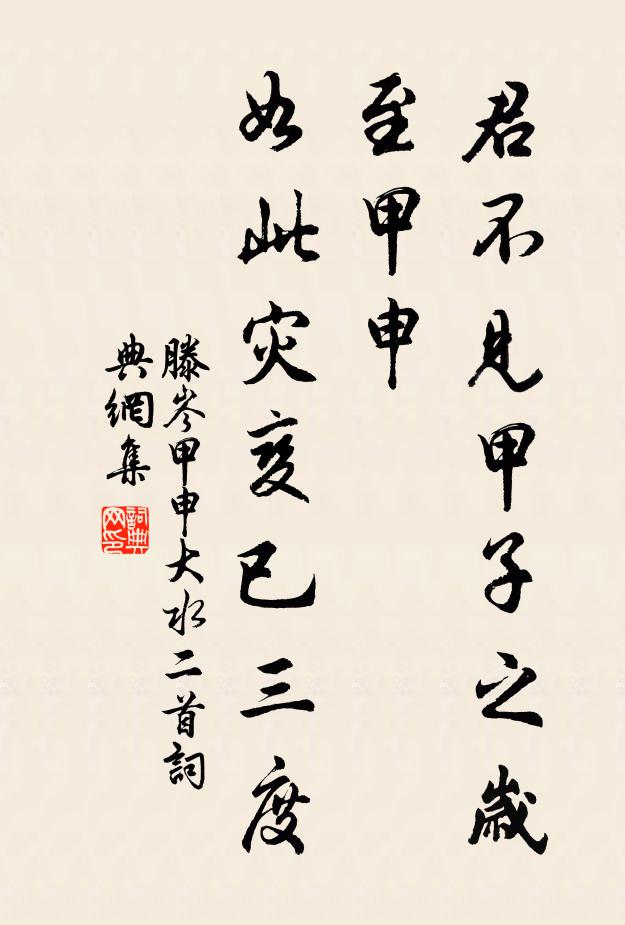 君不見甲子之歲
至甲申
如此灾变已三度
滕岑甲申大水二首詞
典網集
詞典
网印